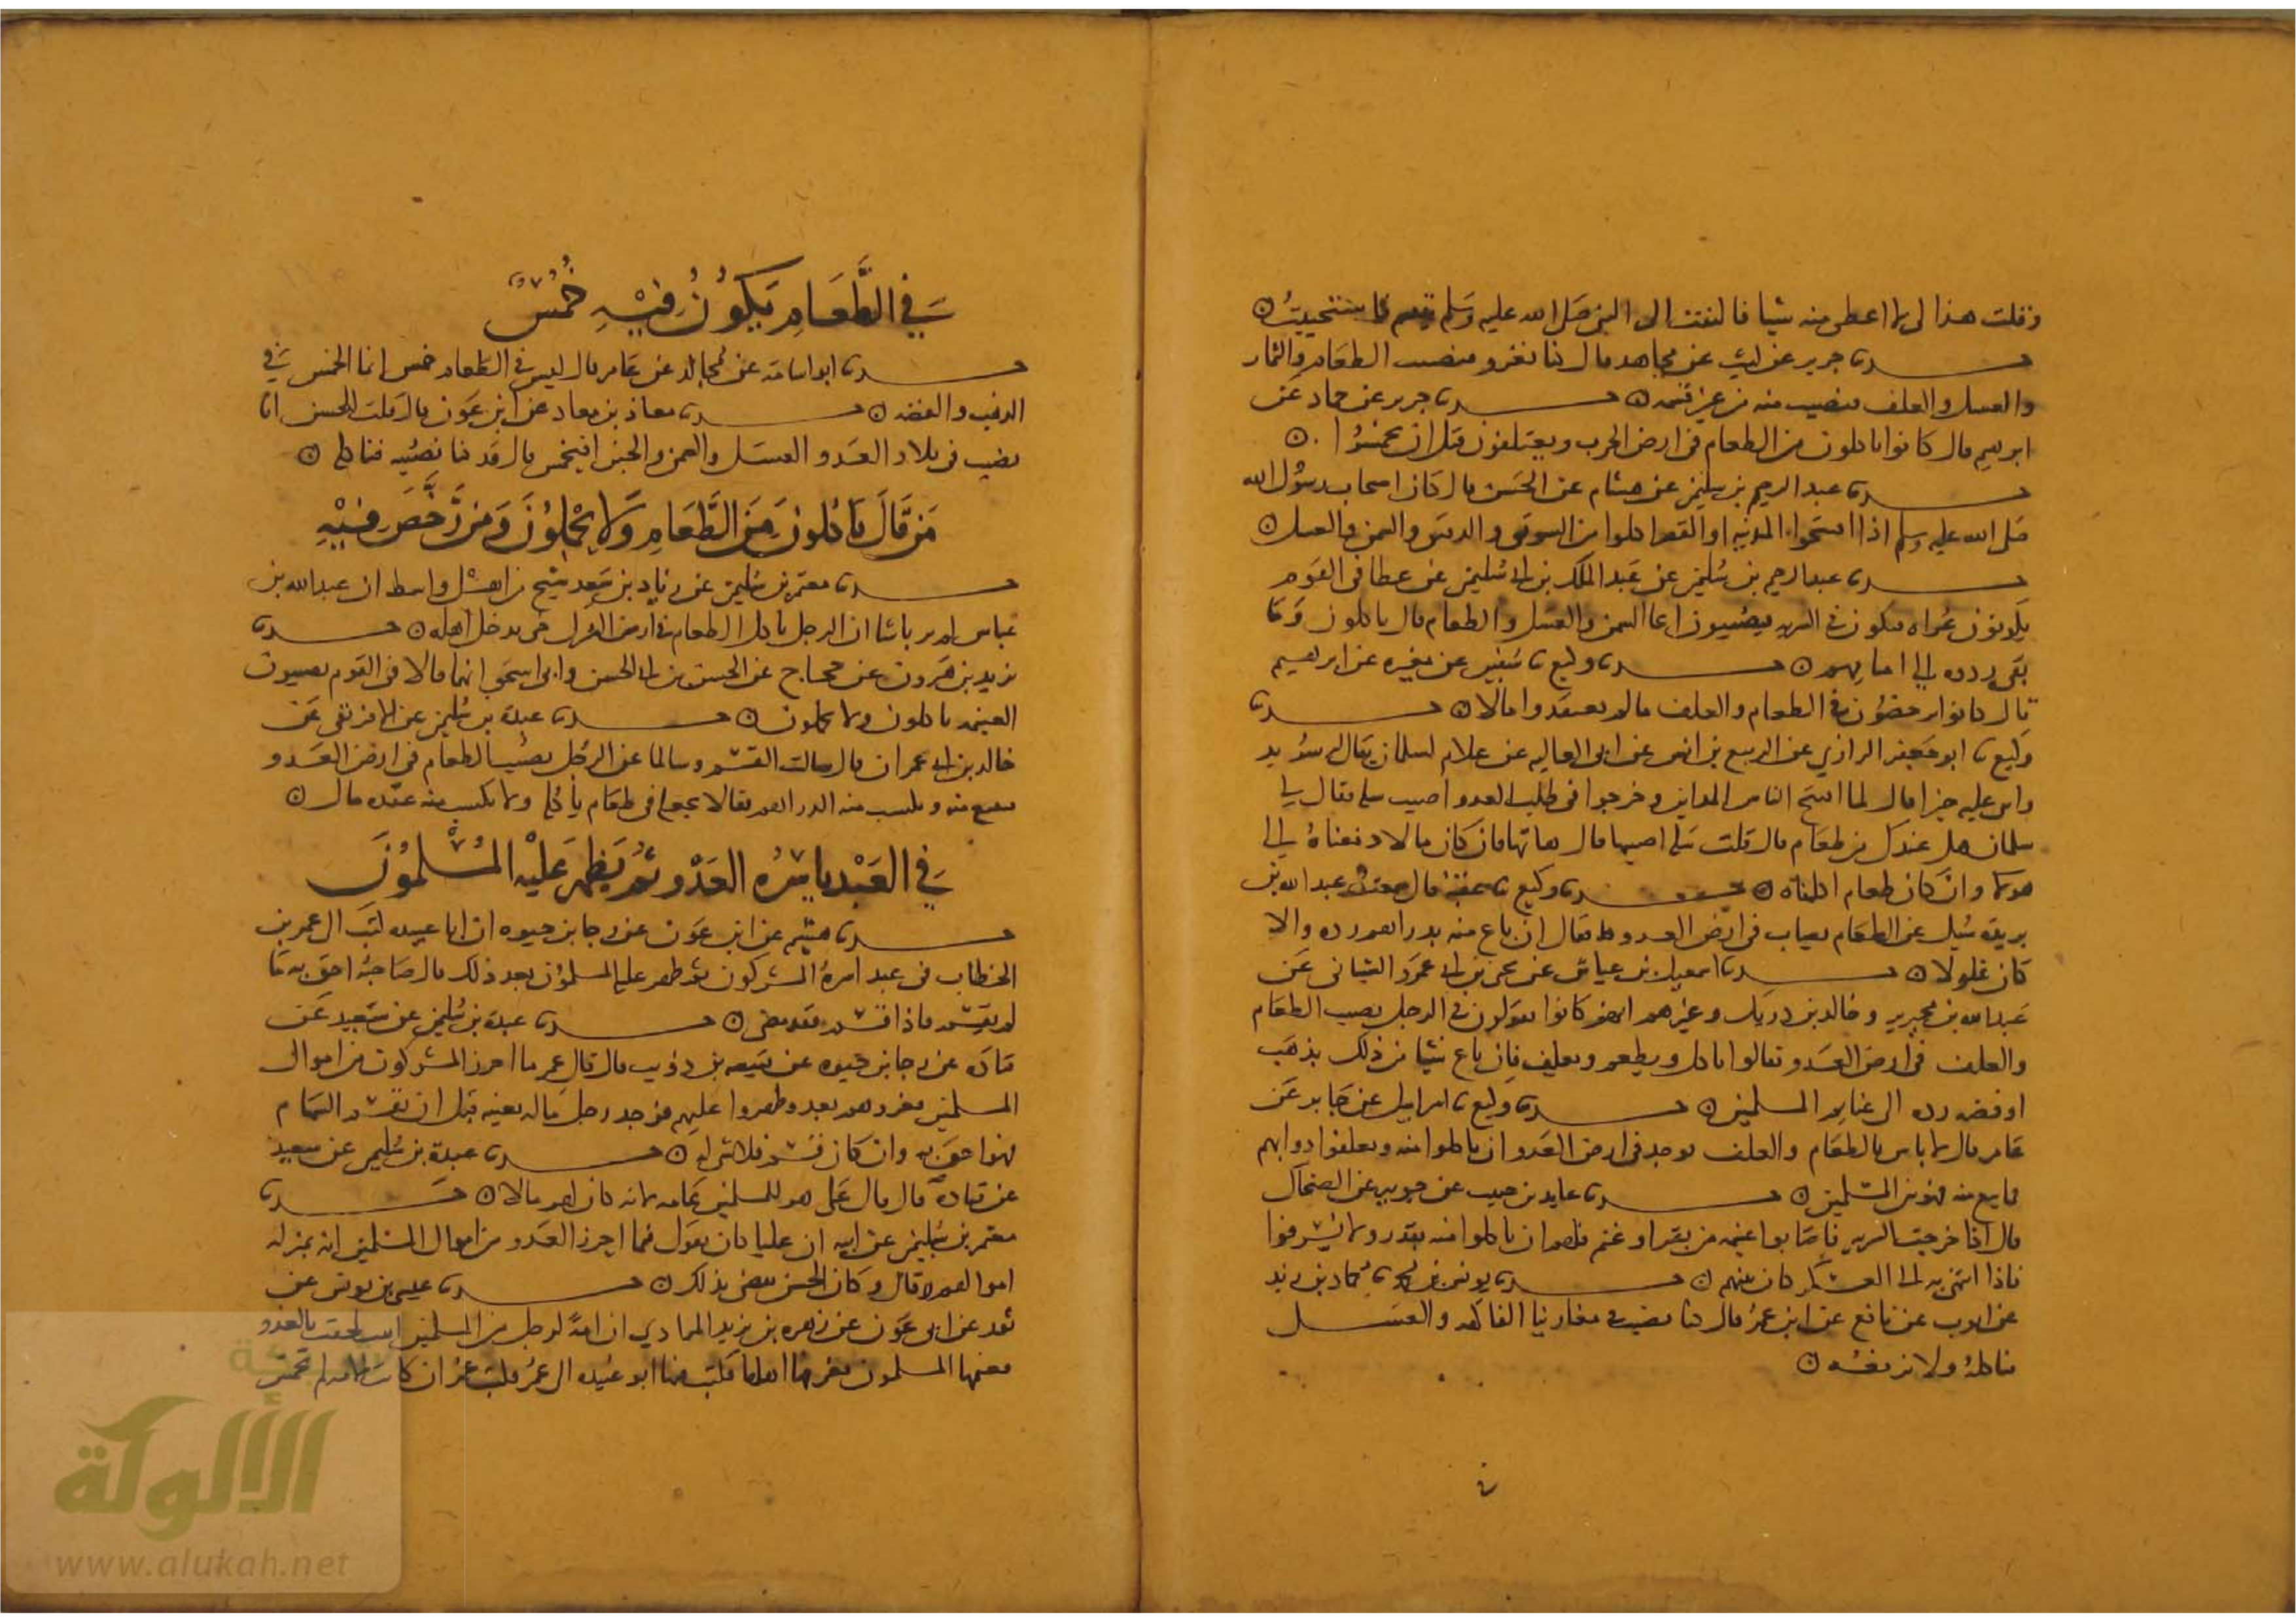 وقلت هذا لي لا اعطي منه شيا فالتفت الى النبي صلى الله عليه وسلم يتبسم فاستحييت
حدثنا جرير عن ليث عن مجاهد قال كنا نغزو فنصيب الطعام والثمار
والعسل والعلف فنصيب منه من غير قسمه حدثنا جرير عن حماد عن
ابرهيم قال كانوا ياكلون من الطعام في ارض الحرب ويعتلفون قبل ان يخمسوا
حدثنا عبد الرحيم بن سليمن عن هشام عن الحسن قال كان اصحاب رسول الله
صلى الله عليه وسلم اذا افتتحوا المدينه او القصر اكلوا من السويق والدقيق والسمن والعسل
حدثنا عبد الرحيم بن سليمن عن عبد الملك بن ابي سليمن عن عطا في القوم
يكونون غزاه فيكونون في السريه فيصيبون انحا السمن والعسل والطعام قال ياكلون وما
بقي ردوه الى امامهم حدثنا وكيع نا سفين عن مغيره عن ابرهيم
قال كانوا يرخصون في الطعام والعلف ما لم يعتقدوا مالا حدثنا
وكيع نا ابو جعفر الرازي عن الربيع بن انس عن ابي العاليه عن غلام لسلمان يقال له سويد
واثنى عليه خيرا قال لما افتتح الناس المداين وخرجوا في طلب العدو اصبت سله فقال لي
سلمان هل عندك من طعام قال قلت سله اصبتها قال هاتها فان كان مالا دفعناه الى
هولا وان كان طعام اكلناه حدثنا وكيع قال سمعت عبد الله بن
بريده سيل عن الطعام يصاب في ارض العدو فقال ان باع منه بدراهم رده والا
كان غلولا حدثنا اسمعيل بن عياش عن يحيى بن ابي عمرو الشيباني عن
عبد الله بن محيريز وخالد بن دريك وغيرهم انهم كانوا يقولون في الرجل يصيب الطعام
والعلف في ارض العدو فقالوا ياكل ويطعم ويعلف فان باع شيا من ذلك بذهب
او فضه رده الى غنايم المسلمين حدثنا وكيع نا اسرايل عن جابر عن
عامر قال لا باس بالطعام والعلف يوجد في ارض العدو ان ياكلوا منه ويعلفوا دوابهم
فما بيع منه فهو بين المسلمين حدثنا عايد بن حبيب عن جويبر عن الضحاك
قال اذا خرجت السريه فاصابوا غنيمه من بقر او غنم فلهم ان ياكلوا منه بقدر ولا يسرفوا
فاذا انتهى به الى العسكر كان بينهم حدثنا يونس بن محمد نا حماد بن زيد
عن ايوب عن نافع عن ابن عمر قال كنا نصيب في مغازينا الفاكهه والعسل
فناكله ولا نرفعه
في الطعام يكون فيه خمس
حدثنا ابو اسامه عن مجالد عن عامر قال ليس في الطعام خمس انما الخمس في
الذهب والفضه حدثنا معاذ بن معاد عن ابن عون قال قلت للحسن انا
نصيب في بلاد العدو العسل والسمن والجبن افيخمس قال قد كنا نصيبه فناكله
من قال ياكلون من الطعام ولا يحملون ومن رخص فيه
حدثنا معتمر بن سليمن عن زياد بن سعد شيخ من اهل واسط ان عبد الله بن
عباس لم ير باسا ان الرجل ياكل الطعام في ارض الشرك حتى يدخل اهله حدثنا
يزيد بن هرون عن حجاج عن الحسن بن ابي الحسن وابي اسحق انهما قالا في القوم يصيبون
الغنيمه ياكلون ولا يحملون حدثنا عبدة بن سليمن عن الافريقي عن
خالد بن ابي عمران قال سالت القسم وسالما عن الرجل يصيب الطعام في ارض العدو
فيبيع منه ويكسب منه الدراهم فقالا يجعله في طعام ياكله ولا يكسب منه عقده مال
في العبد ياسره العدو ثم يظهر عليه المسلمون
حدثنا هشيم عن ابن عون عن رجا بن حيوه ان ابا عبيده كتب الى عمر بن
الخطاب في عبد اسره المشركون ثم ظهر عليه المسلمون بعد ذلك قال صاحبه احق به ما
لم يقسم فاذا قسم فقد مضى حدثنا عبدة بن سليمن عن سعيد عن
قتادة عن رجا بن حيوه عن قبيصه بن ذؤيب قال قال عمر ما احرز المشركون من اموال
المسلمين فغزوهم بعد وظهروا عليهم فوجد رجل ماله بعينه قبل ان تقسم السهام
فهو احق به وان كان قسم فلا شي له حدثنا عبدة بن سليمن عن سعيد
عن قتادة قال قال علي هو للمسلمين عامه لانه كان لهم مالا حدثنا
معتمر بن سليمن عن ابيه ان عليا كان يقول فيما احرز العدو من اموال المسلمين انه بمنزلة
اموالهم قال وكان الحسن يقضي بذلك حدثنا عيسى بن يونس عن
ثور عن ابي عون عن زهره بن يزيد المرادي ان امة لرجل من المسلمين ابقت لحقت بالعدو
فغنمها المسلمون فعرفها اهلها فكتب فيها ابو عبيده الى عمر فكتب عمر ان كانت الامه لم تخمس
الألوكة
www.alukah.net